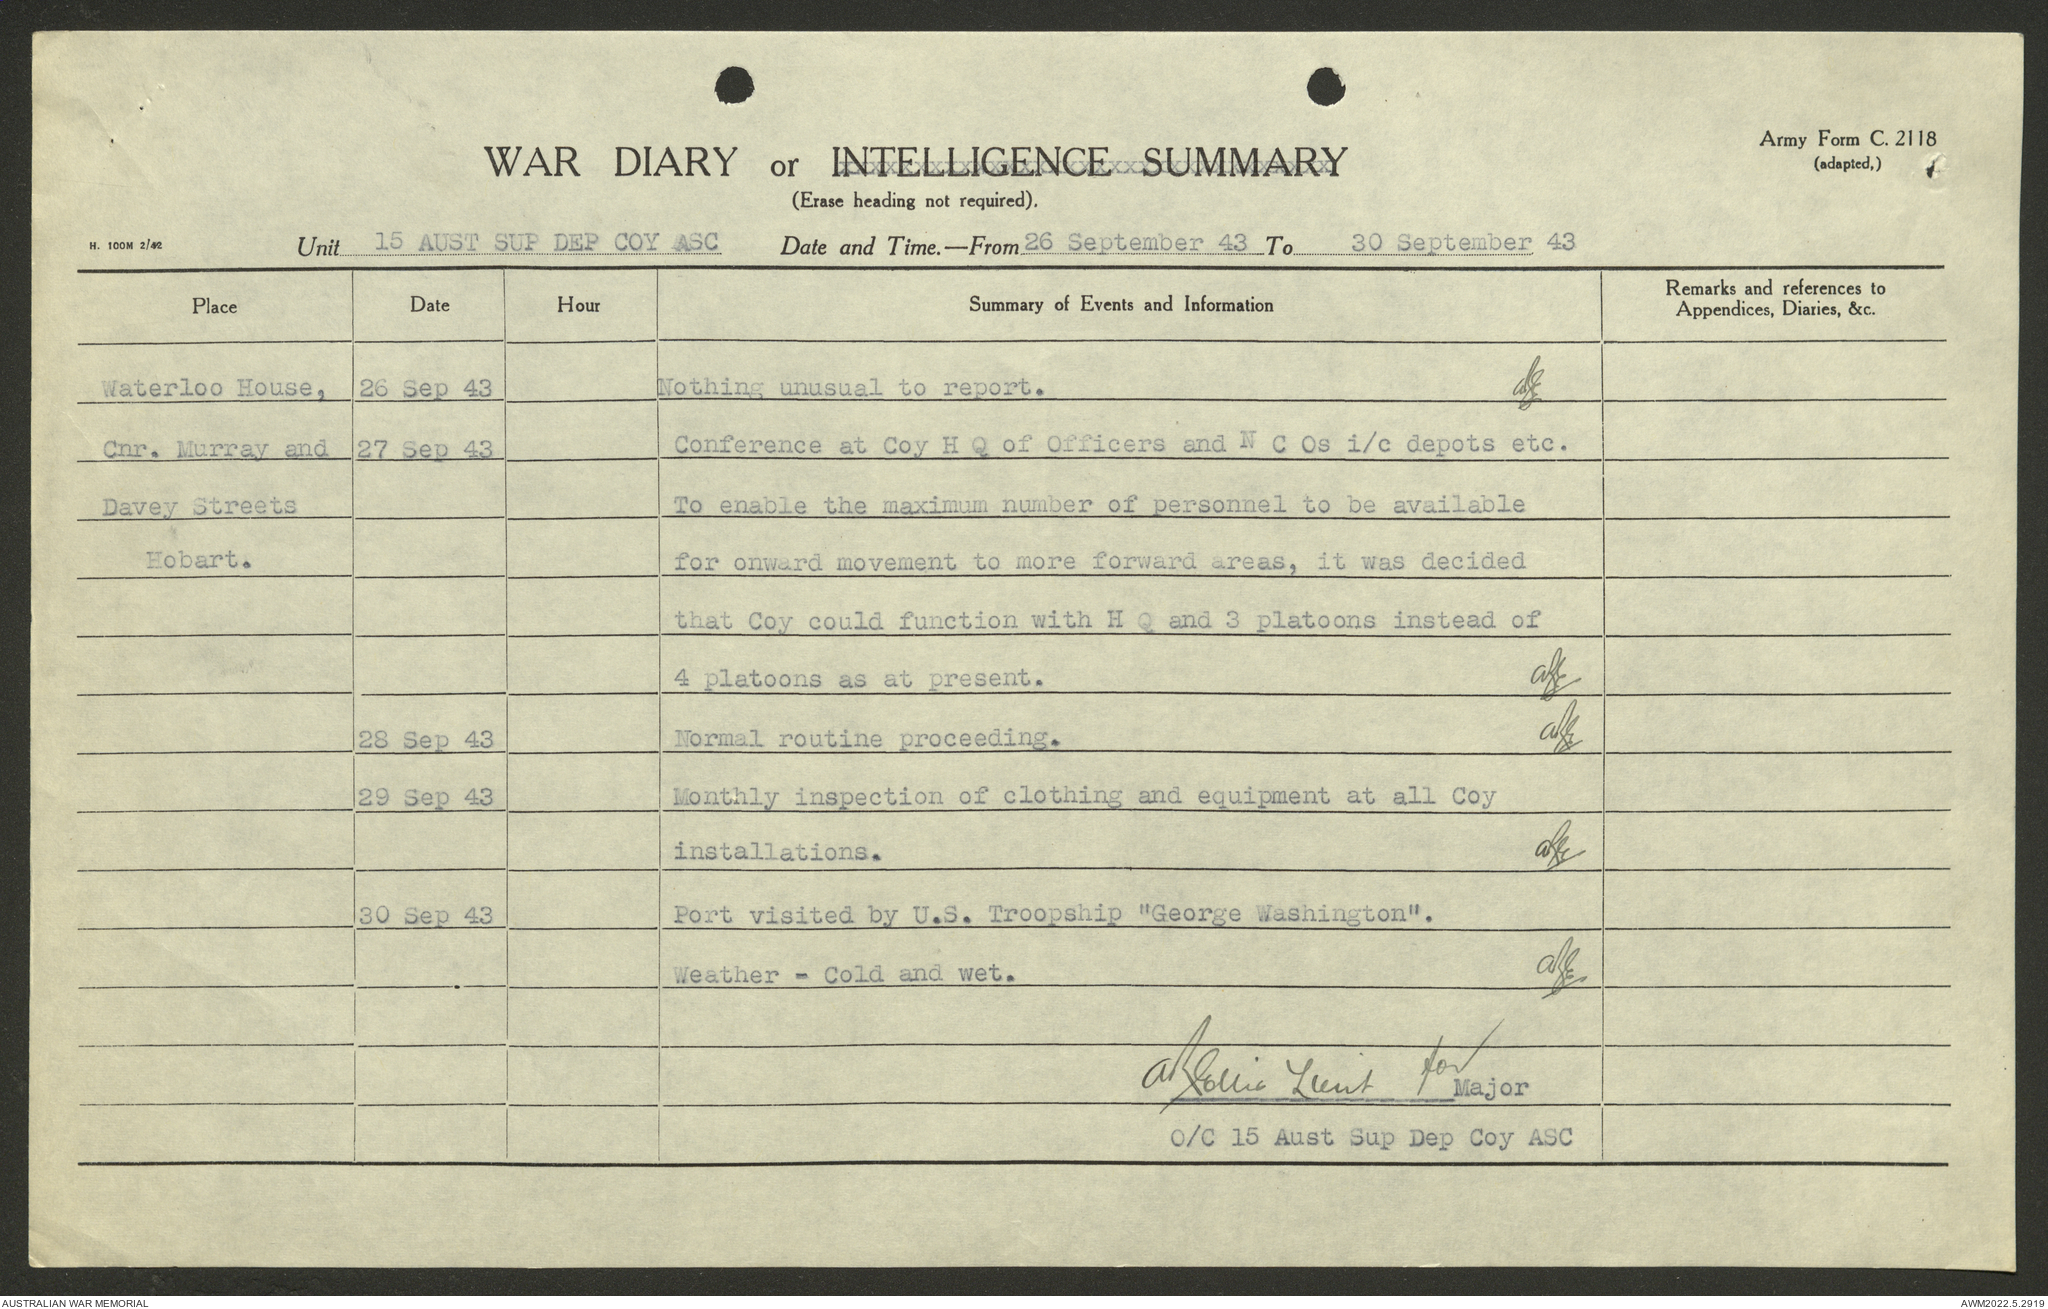 Army Form C. 2118
(adapted,)
WAR DIARY or INTELLIGENCE SUMMARY
(Erase heading not required).
H. 100M 2/42
Unit 15 AUST SUP DEP COY ASC Date and Time.—From 26 September 43 To 30 September 43
Place Date Hour Summary of Events and Information Remarks and references to
Appendices, Diaries, &c.
Waterloo House, 26 Sep 43 Nothing unusual to report.
Cnr. Murray and 27 Sep 43 Conference at Coy H Q of Officers and N C Os i/c depots etc.
Davey Streets To enable the maximum number of personnel to be available
Hobart. for onward movement to more forward areas, it was decided
that Coy could function with H Q and 3 platoons instead of
4 platoons as at present.
28 Sep 43 Normal routine proceeding.
29 Sep 43 Monthly inspection of clothing and equipment at all Coy
installations.
30 Sep 43 Port visited by U.S. Troopship "George Washington".
Weather - Cold and wet.
Lieut for Major
O/C 15 Aust Sup Dep Coy ASC
AUSTRALIAN WAR MEMORIAL AWM2022.5.2919